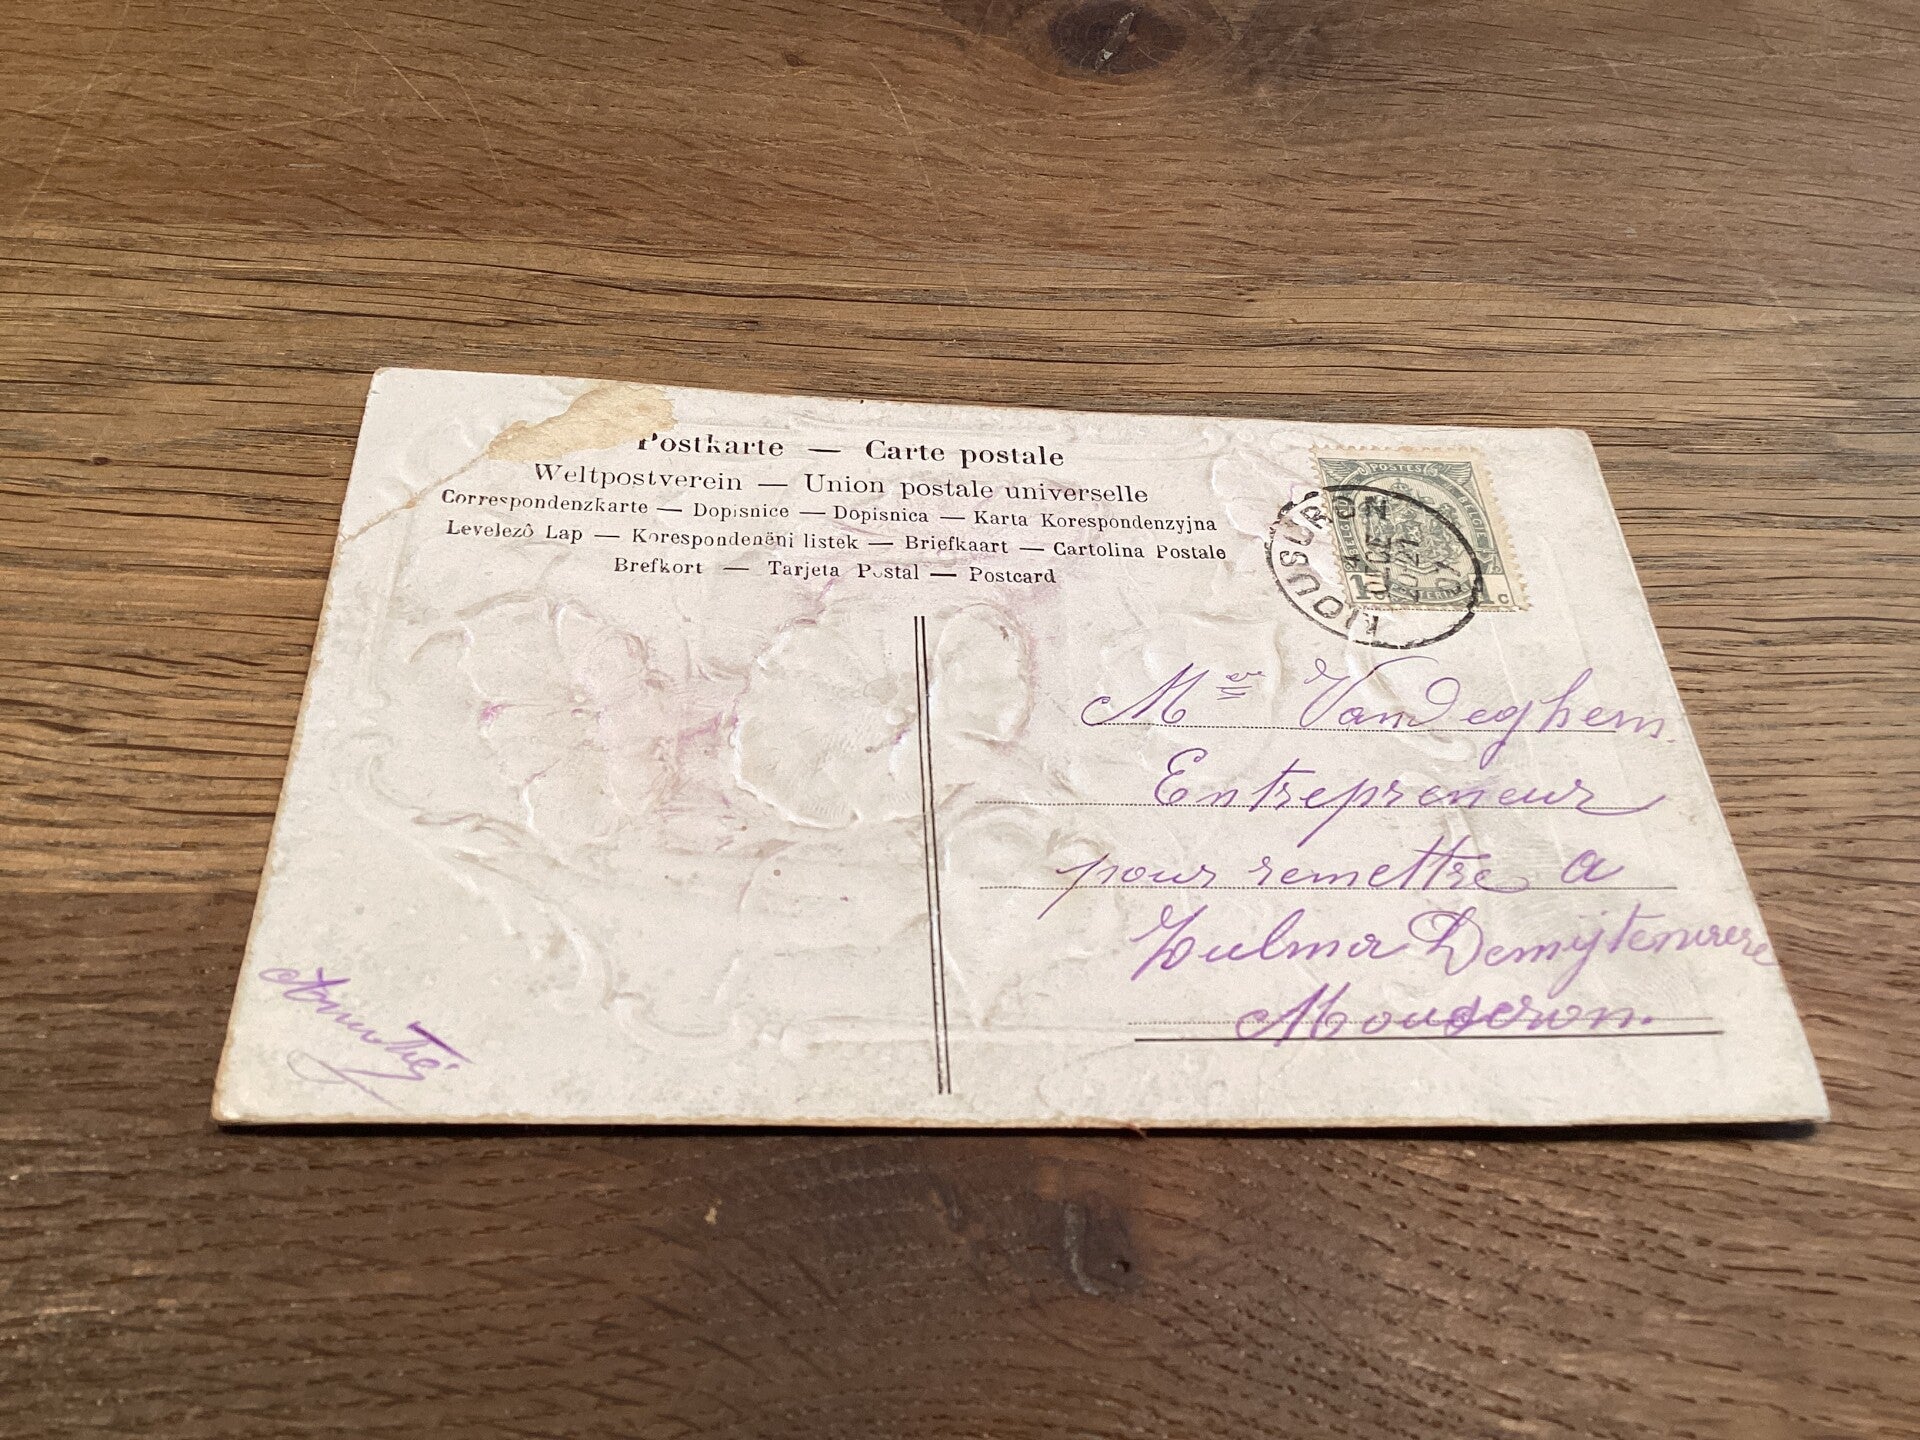 Postkarte — Carte postale
Weltpostverein — Union postale universelle
Correspondenzkarte — Dopisnice — Dopisnica — Karta Korespondenzyjna
Levelezô Lap — Korespondenëni listek — Briefkaart — Cartolina Postale
Brefkort — Tarjeta Postal — Postcard
POSTES
1 c
DECE
07
Vandeghem
Entrepreneur
pour remettre a
Zulma
Mouscron.